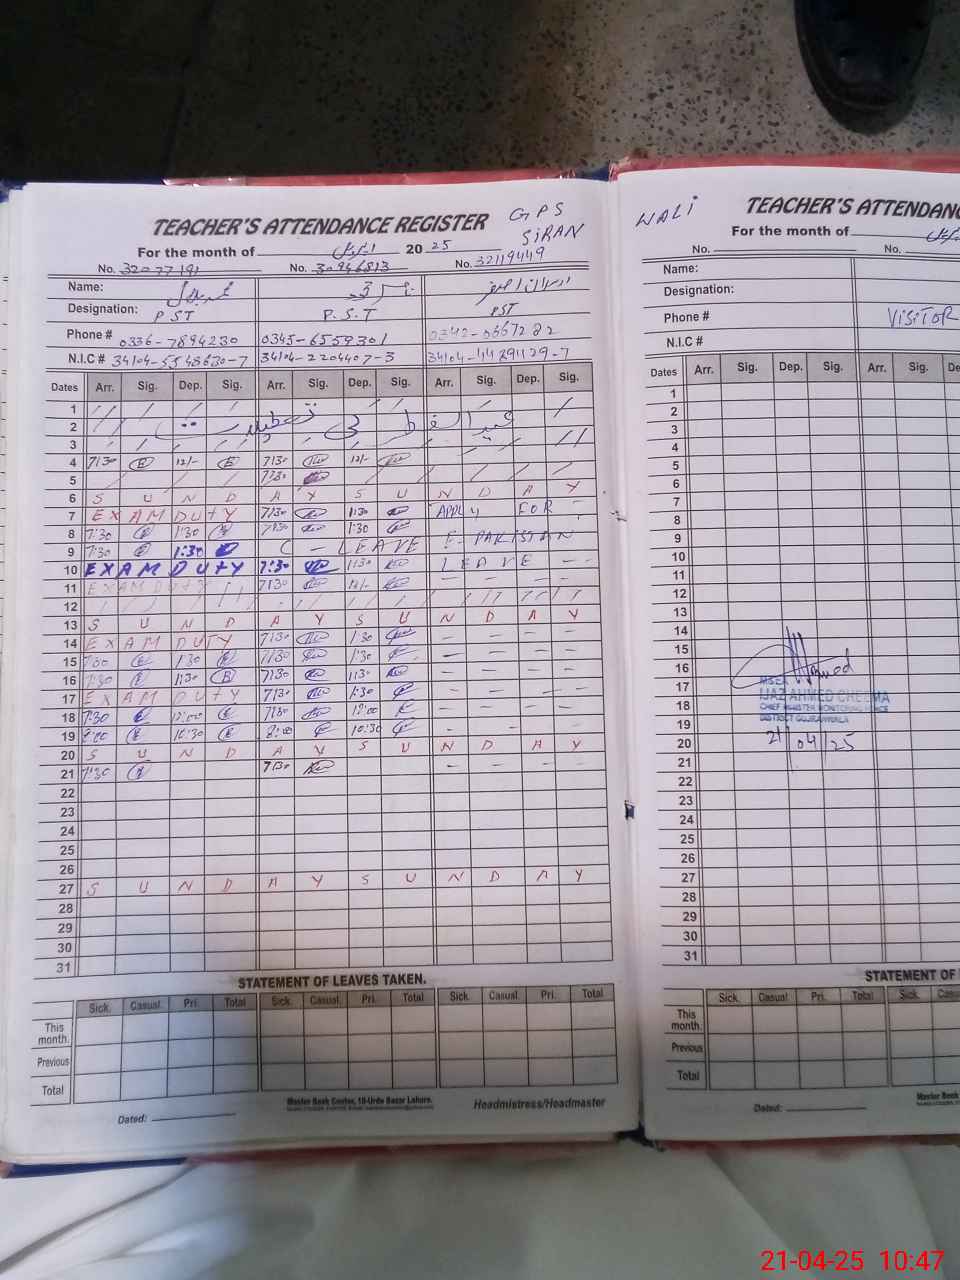 TEACHER'S ATTENDANCE REGISTER GPS SIRAN
For the month of اپریل 2025
No. 32077191 No. 30946813 No. 32119449
Name:
Designation: PST P.S.T PST
Phone # 0336-7894230 0345-6559301 0342-0667282
N.I.C # 34104-5548630-7 34104-2204407-3 34104-4429129-7
Dates Arr. Sig. Dep. Sig. Arr. Sig. Dep. Sig. Arr. Sig. Dep. Sig.
1
2 عید الفطر کی تعطیلات
3
4 7:30 12/- 7:30 12/-
5 7:30
6 S U N D A Y S U N D A Y
7 EXAM DUTY 7:30 1:30 APPLY FOR -
8 7:30 1:30 7:30 1:30
9 7:30 1:30 C - LEAVE E-PAKISTAN
10 EXAM DUTY 7:30 1:30 LEAVE - -
11 EXAM DUTY 7:30 12/- - - - -
12
13 S U N D A Y S U N D A Y
14 EXAM DUTY 7:30 1:30 - - - -
15 7:30 1:30 7:30 1:30 - - - -
16 7:30 1:30 7:30 1:30 - - - -
17 EXAM DUTY 7:30 1:30 - - - -
18 7:30 12:00 7:30 12:00 - - - -
19 8:00 10:30 8:00 10:30 - - - -
20 S U N D A Y S U N D A Y
21 7:30 7:30 - - - -
22
23
24
25
26
27 S U N D A Y S U N D A Y
28
29
30
31
STATEMENT OF LEAVES TAKEN.
Sick. Casual. Pri. Total Sick. Casual. Pri. Total Sick. Casual. Pri. Total
This month.
Previous
Total
Master Book Center, 10-Urdu Bazar Lahore.
Dated: Headmistress/Headmaster
WALI TEACHER'S ATTENDANC
For the month of
No. No.
Name:
Designation:
Phone # VISITOR
N.I.C #
Dates Arr. Sig. Dep. Sig. Arr. Sig. De
1
2
3
4
5
6
7
8
9
10
11
12
13
14
15
16
17
18
19
20
21
22
23
24
25
26
27
28
29
30
31
Hamed
MSEA
IJAZ AHMED CHEEMA
CHIEF MINISTER MONITORING FORCE
DISTRICT GUJRANWALA
21/04/25
STATEMENT OF
Sick. Casual. Pri. Total Sick. Casu
This month.
Previous
Total
Master Book
Dated:
21-04-25 10:47